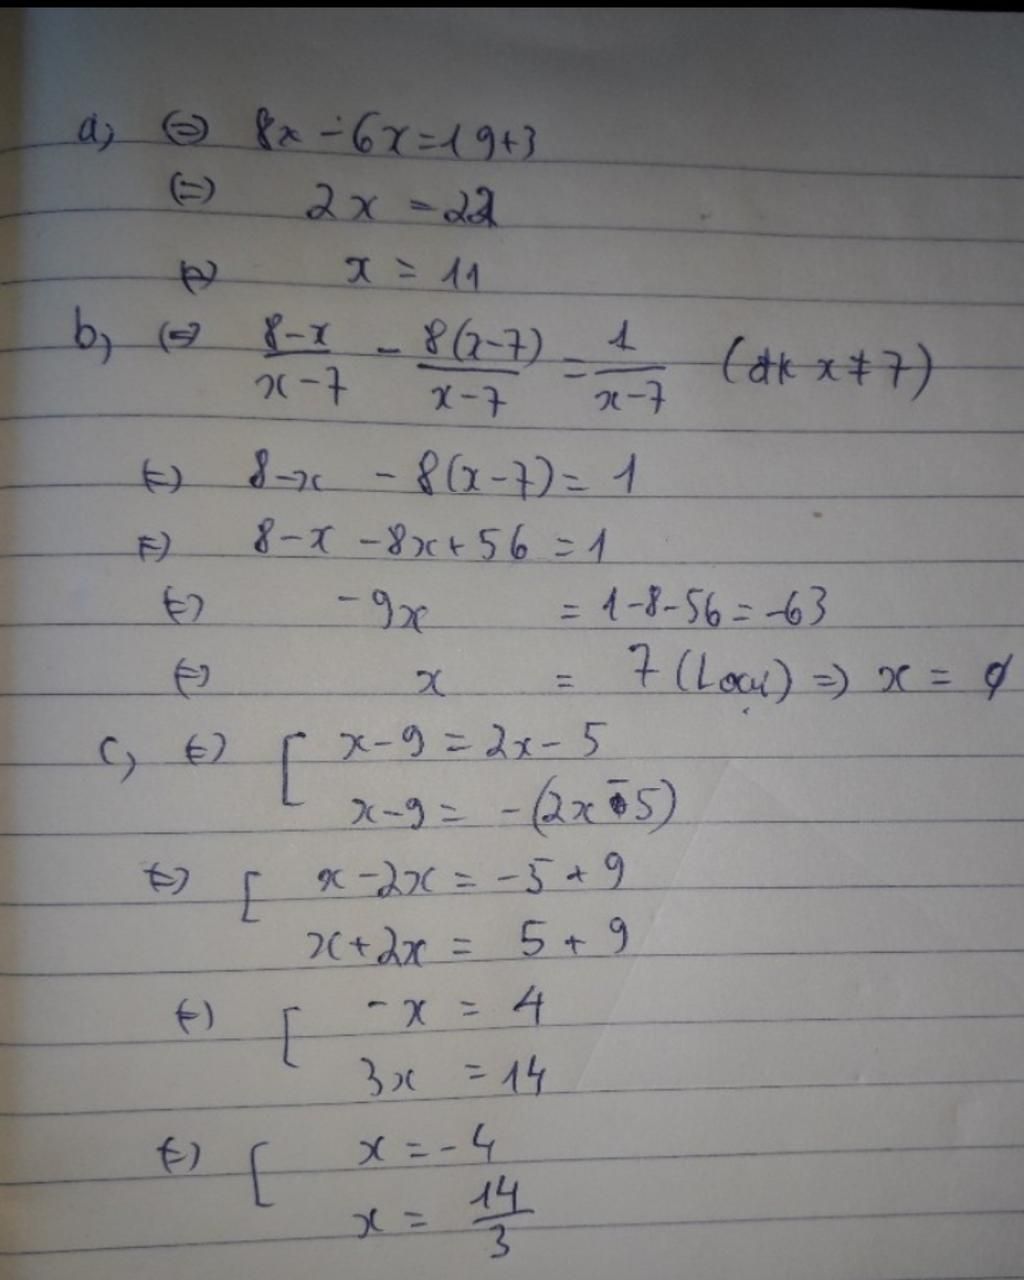 a, (=) 8x - 6x = 19+3
(=) 2x = 22
(=) x = 11
b, (=) \frac{8-x}{x-7} - \frac{8(x-7)}{x-7} = \frac{1}{x-7} (đk x ≠ 7)
(=) 8-x - 8(x-7) = 1
(=) 8-x - 8x + 56 = 1
(=) -9x = 1-8-56 = -63
(=) x = 7 (Loại) => x = ∅
c, (=) [ x-9 = 2x-5
x-9 = -(2x-5)
(=) [ x-2x = -5+9
x+2x = 5+9
(=) [ -x = 4
3x = 14
(=) [ x = -4
x = \frac{14}{3}